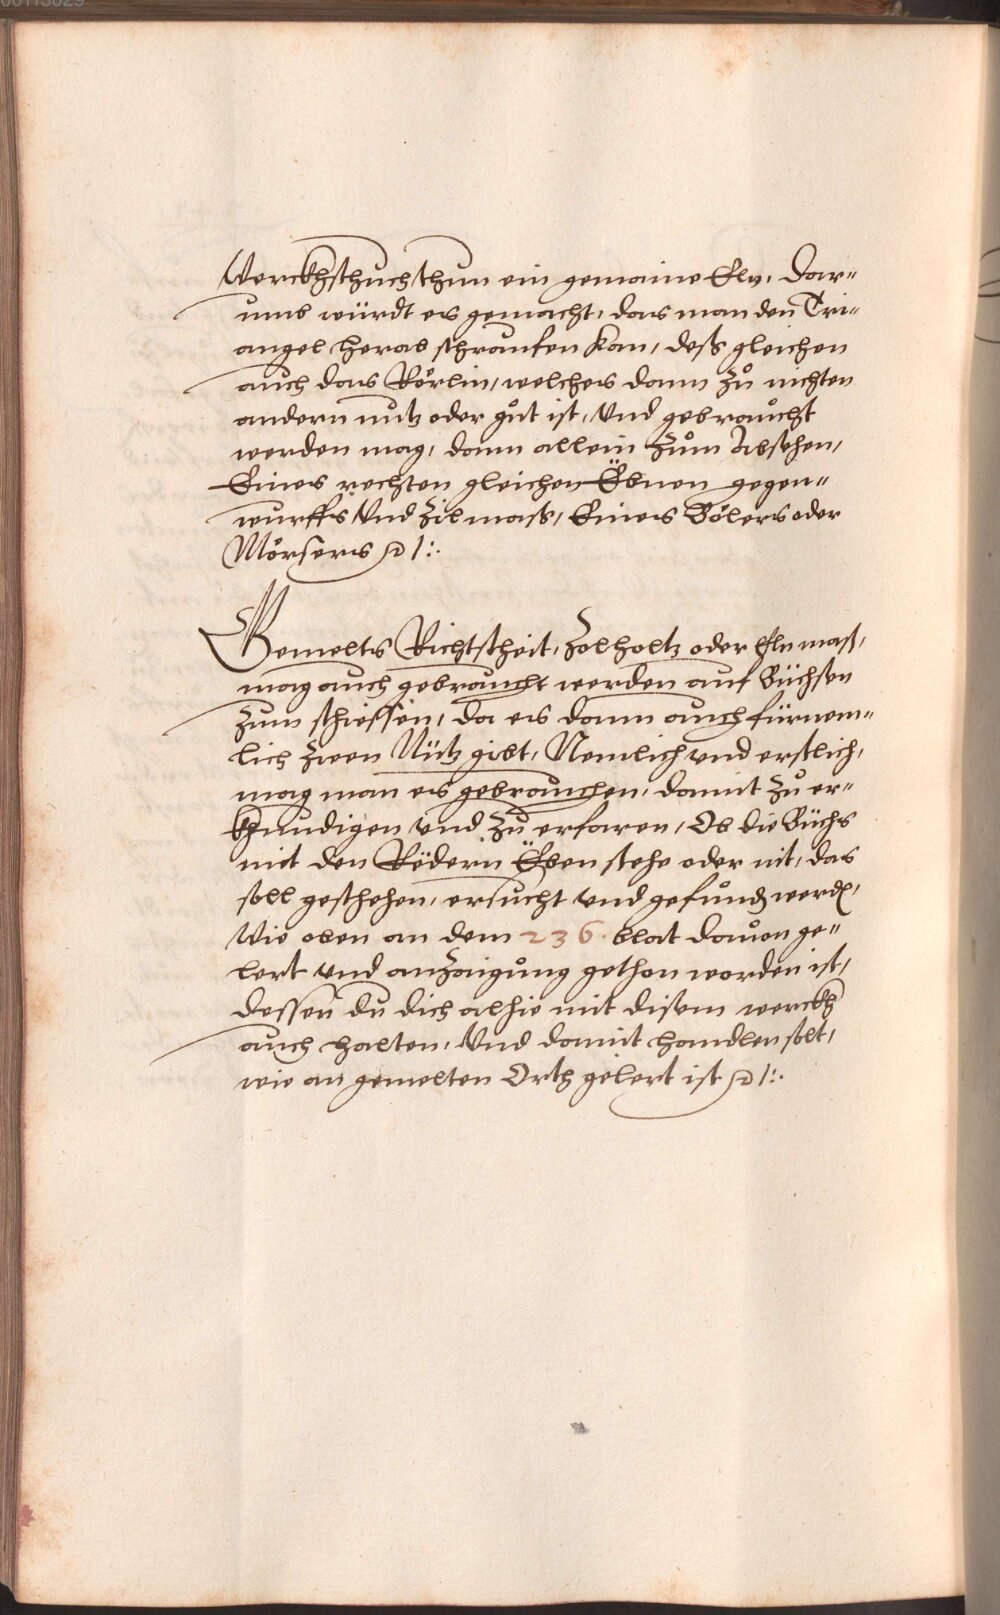 Werckhschuch thun ein gemaine Eln, Dar=
umb würdt es gemacht, das man den Tri=
angel herab schraufen kan, deß gleichen
auch das Rörlin, welches dann zů nichten
andern nutz oder gůt ist, Und gebraucht
werden mag, dann allein zům Absehen,
Eines rechten gleichen Ebnen gegen=
wurffs Und Zil mass, Eines Bölers oder
Mörsers
Gemelts Richtscheit, Zolholtz oder Eln mass,
mag auch gebraucht werden auf Büchsen
zum schiessen, da es dann auch fürnem=
lich zween Nütz gibt, Nemlich und erstlich,
mag man es gebrauchen, damit zů er=
khundigen und zů erfaren, Ob die Büchs
mit den Redern Eben stehe oder nit, das
soll geschehen, ersucht und gefunden werden,
Wie oben an dem 236. blat dauon ge=
lert und anzaigung gethon worden ist,
dessen du dich alhie mit disem werckh
auch halten, Und damit handlen solt,
wie an gemelten Orth gelert ist